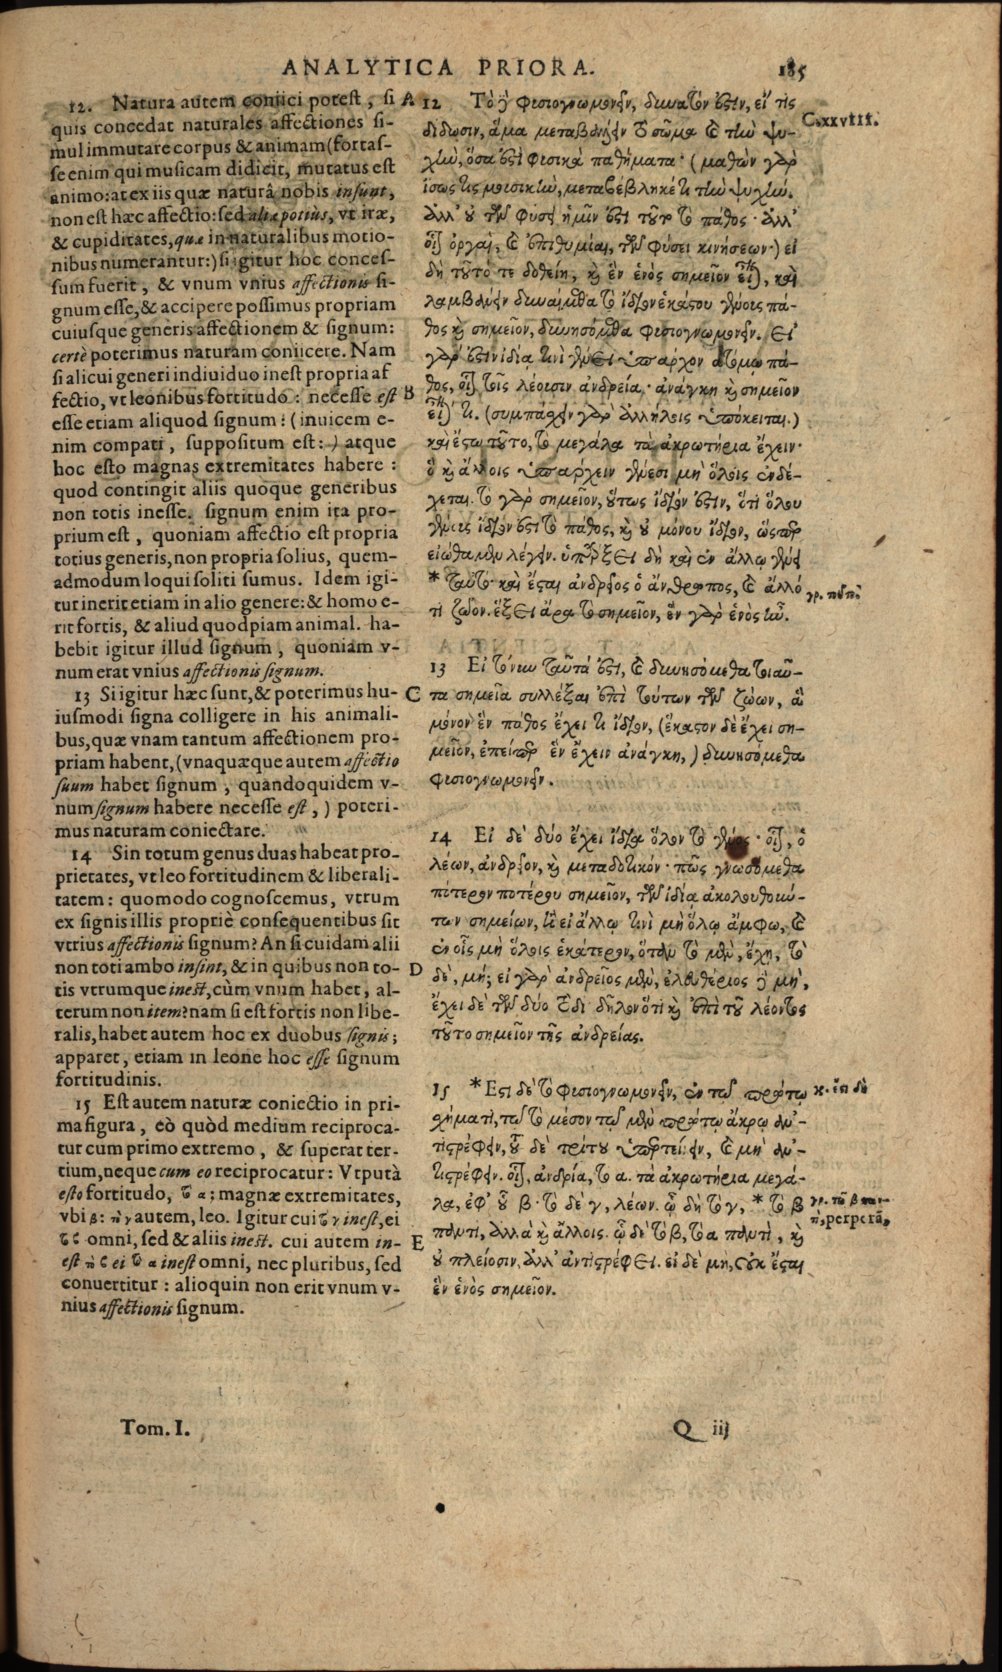 ANALYTICA PRIORA.
185
12. Natura autem coniici potest, si
quis concedat naturales affectiones si-
mul immutare corpus & animam (fortas-
se enim qui musicam didicit, mutatus est
animo: at ex iis quæ naturâ nobis insunt,
non est hæc affectio: sed aliæ potiùs, vt iræ,
& cupiditates, quæ in naturalibus motio-
nibus numerantur:) si igitur hoc conces-
sum fuerit, & vnum vnius affectionis si-
gnum esse, & accipere possimus propriam
cuiusque generis affectionem & signum:
certè poterimus naturam coniicere. Nam
si alicui generi indiuiduo inest propria af
fectio, vt leonibus fortitudo: necesse est
esse etiam aliquod signum: (inuicem e-
nim compati, suppositum est:) atque
hoc esto magnas extremitates habere:
quod contingit aliis quoque generibus
non totis inesse. signum enim ita pro-
prium est, quoniam affectio est propria
totius generis, non propria solius, quem-
admodum loqui soliti sumus. Idem igi-
tur inerit etiam in alio genere: & homo e-
rit fortis, & aliud quodpiam animal. ha-
bebit igitur illud signum, quoniam v-
num erat vnius affectionis signum.
13 Si igitur hæc sunt, & poterimus hu-
iusmodi signa colligere in his animali-
bus, quæ vnam tantum affectionem pro-
priam habent, (vnaquæque autem affectio
suum habet signum, quandoquidem v-
num signum habere necesse est,) poteri-
mus naturam coniectare.
14 Sin totum genus duas habeat pro-
prietates, vt leo fortitudinem & liberali-
tatem: quomodo cognoscemus, vtrum
ex signis illis propriè consequentibus sit
vtrius affectionis signum? An si cuidam alii
non toti ambo insint, & in quibus non to-
tis vtrumque inest, cùm vnum habet, al-
terum non item? nam si est fortis non libe-
ralis, habet autem hoc ex duobus signis;
apparet, etiam in leone hoc esse signum
fortitudinis.
15 Est autem naturæ coniectio in pri-
ma figura, eò quòd medium reciproca-
tur cum primo extremo, & superat ter-
tium, neque cum eo reciprocatur: Vt putà
esto fortitudo, τὸ α; magnæ extremitates,
vbi β: τὸ γ autem, leo. Igitur cui τὸ γ inest, ei
τὸ ϐ omni, sed & aliis inest. cui autem in-
est τὸ ϐ ei τὸ α inest omni, nec pluribus, sed
conuertitur: alioquin non erit vnum v-
nius affectionis signum.
A
B
C
D
E
12 Τὸ δὲ φυσιογνωμονεῖν, δυνατόν ἐστιν, εἴ τις
δίδωσιν, ἅμα μεταβάλλειν τὸ σῶμα καὶ τὴν ψυ-
χὴν, ὅσα ἐστὶ φυσικὰ παθήματα· (μαθὼν γὰρ
ἴσως τις μουσικὴν, μεταβέβληκέ τι τὴν ψυχὴν.
ἀλλ' οὐ τῶν φύσει ἡμῖν ἐστι τοῦτο τὸ πάθος· ἀλλ'
οἷον ὀργαὶ, καὶ ἐπιθυμίαι, τῶν φύσει κινήσεων·) εἰ
δὴ τοῦτό τε δοθείη, καὶ ἓν ἑνὸς σημεῖον εἶναι, καὶ
λαμβάνειν δυναίμεθα τὸ ἴδιον ἑκάστου γένους πά-
θος καὶ σημεῖον, δυνησόμεθα φυσιογνωμονεῖν. Εἰ
γάρ ἐστιν ἰδίᾳ τινὶ γένει ὑπάρχον ἀτόμῳ πά-
θος, οἷον τοῖς λέουσιν ἀνδρεία· ἀνάγκη καὶ σημεῖον
εἶναί τι. (συμπάσχειν γὰρ ἀλλήλοις ὑπόκειται.)
καὶ ἔστω τοῦτο, τὸ μεγάλα τὰ ἀκρωτήρια ἔχειν·
ὃ καὶ ἄλλοις ὑπάρχειν γένεσι μὴ ὅλοις ἐνδέ-
χεται. τὸ γὰρ σημεῖον, οὕτως ἴδιόν ἐστιν, ὅτι ὅλου
γένους ἴδιόν ἐστι τὸ πάθος, καὶ οὐ μόνου ἴδιον, ὥσπερ
εἰώθαμεν λέγειν. ὑπάρξει δὴ καὶ ἐν ἄλλῳ γένει
* ταὐτὸ· καὶ ἔσται ἀνδρεῖος ὁ ἄνθρωπος, καὶ ἄλλό
τι ζῶον. ἕξει ἄρα τὸ σημεῖον, ἓν γὰρ ἑνὸς ἦν.
13 Εἰ τοίνυν ταῦτά ἐστι, καὶ δυνησόμεθα τοιαῦ-
τα σημεῖα συλλέξαι ἐπὶ τούτων τῶν ζώων, ἃ
μόνον ἓν πάθος ἔχει τι ἴδιον, (ἕκαστον δὲ ἔχει ση-
μεῖον, ἐπείπερ ἓν ἔχειν ἀνάγκη,) δυνησόμεθα
φυσιογνωμονεῖν.
14 Εἰ δὲ δύο ἔχει ἴδια ὅλον τὸ γένος· οἷον, ὁ
λέων, ἀνδρεῖον, καὶ μεταδοτικόν· πῶς γνωσόμεθα
πότερον ποτέρου σημεῖον, τῶν ἰδίᾳ ἀκολουθούν-
των σημείων, ἢ εἰ ἄλλῳ τινὶ μὴ ὅλῳ ἄμφω, καὶ
ἐν οἷς μὴ ὅλοις ἑκάτερον, ὅταν τὸ μὲν, ἔχῃ, τὸ
δὲ, μή; εἰ γὰρ ἀνδρεῖος μὲν, ἐλευθέριος δὲ μὴ,
ἔχει δὲ τῶν δύο τοδὶ· δῆλον ὅτι καὶ ἐπὶ τοῦ λέοντος
τοῦτο σημεῖον τῆς ἀνδρείας.
15 *Ἔστι δὲ τὸ φυσιογνωμονεῖν, ἐν τῷ πρώτῳ
σχήματι, τῷ τὸ μέσον τῷ μὲν πρώτῳ ἄκρῳ ἀν-
τιστρέφειν, τοῦ δὲ τρίτου ὑπερτείνειν, καὶ μὴ ἀν-
τιστρέφειν. οἷον, ἀνδρία, τὸ α. τὰ ἀκρωτήρια μεγά-
λα, ἐφ' οὗ β· τὸ δὲ γ, λέων. ᾧ δὴ τὸ γ, * τὸ β
παντὶ, ἀλλὰ καὶ ἄλλοις. ᾧ δὲ τὸ β, τὸ α παντὶ, καὶ
οὐ πλείοσιν, ἀλλ' ἀντιστρέφει. εἰ δὲ μὴ, οὐκ ἔσται
ἓν ἑνὸς σημεῖον.
C. xxviii.
χ. ἔτι δὲ
perperā,
Tom. I.
Q iij